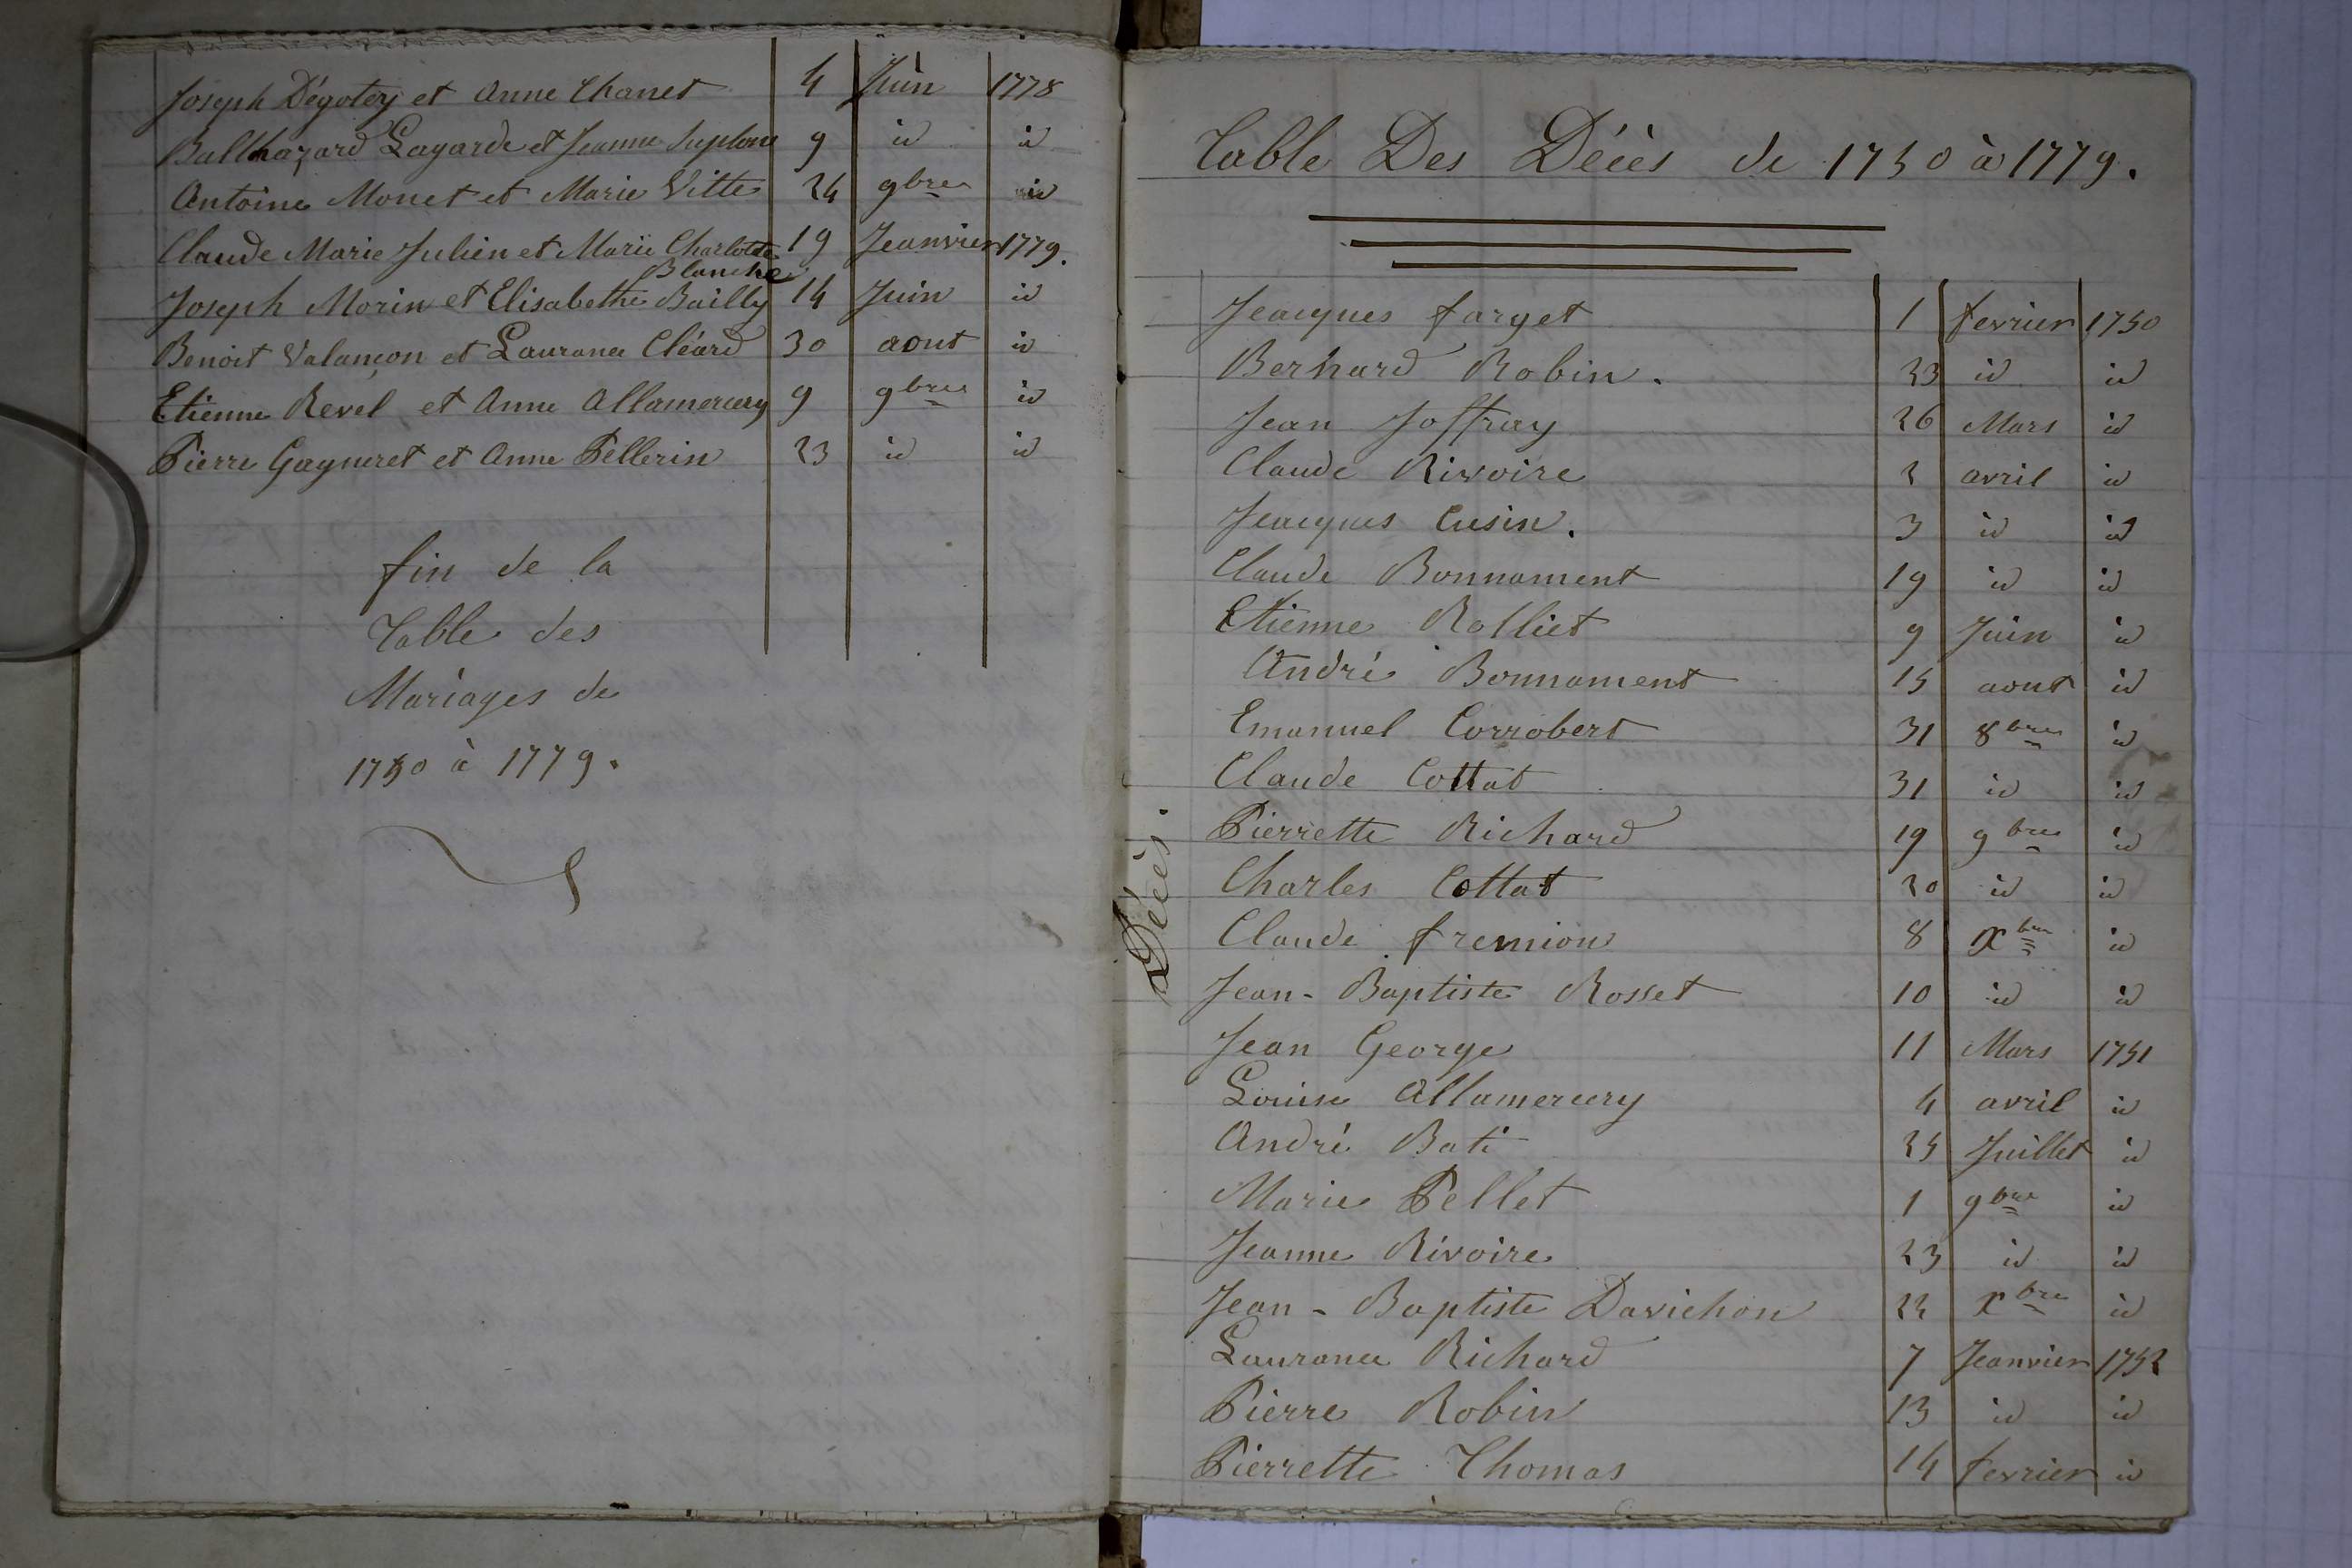 Joseph Dégotey et Anne Chanet 4 Juin 1778
Balthazard Lagarde et Jeanne 9 id id
Antoine Monet et Marie Vitte 24 9bre id
Claude Marie Julien et Marie Charlotte 19 Jeanvier 1779.
Blanche
Joseph Morin et Elisabethe Bailly 14 Juin id
Benoit Valançon et Laurance Cléard 30 aout id
Etienne Revel et Anne Allamercery 9 9bre id
Pierre Gayneret et Anne Pellerin 23 id id
fin de la
Table des
Mariages de
1750 à 1779.
Table Des Décès de 1750 à 1779.
Décès.
Jeacques farget 1 fevrier 1750
Berhard Robin. 23 id id
Jean Joffray 26 Mars id
Claude Rivoire 2 avril id
Jeacques Cusin. 3 id id
Claude Bonnament 19 id id
Etienne Rolliet 9 Juin id
André Bonnament 15 aout id
Emanuel Corrobert 31 8bre id
Claude Cottat 31 id id
Pierrette Richard 19 9bre id
Charles Cottat 20 id id
Claude fremion 8 Xbre id
Jean-Baptiste Rosset 10 id id
Jean George 11 Mars 1751
Louise Allamercery 4 avril id
André Bati 25 Juillet id
Marie Pellet 1 9bre id
Jeanne Rivoire 23 id id
Jean-Baptiste Davichon 22 Xbre id
Laurance Richard 7 Jeanvier 1752
Pierre Robin 13 id id
Pierrette Thomas 14 fevrier id